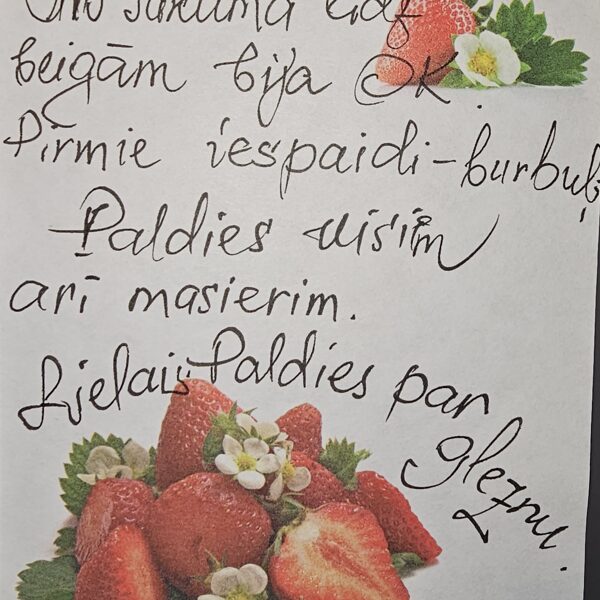 sākuma līdz
beigām bija OK.
Pirmie iespaidi - burbuļ
Paldies visiem
arī masierim.
Lielais Paldies par
gleznu.